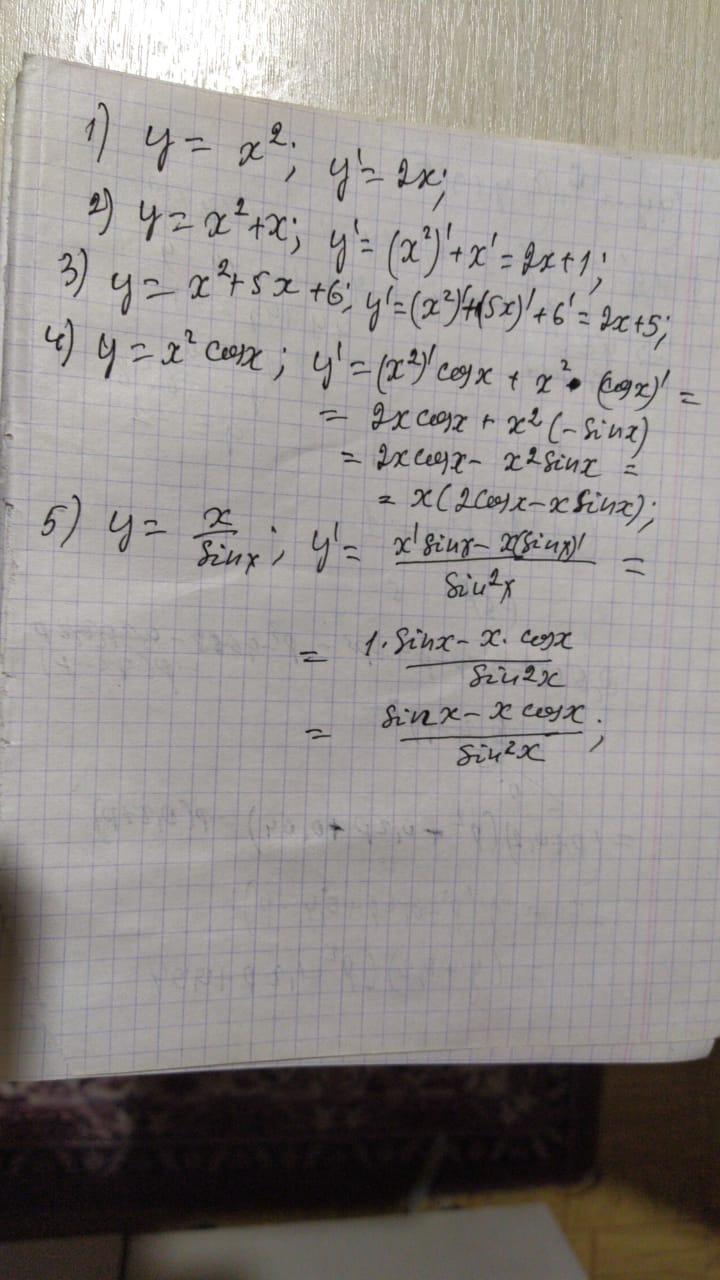 1) y = x²; y' = 2x;
2) y = x²+x; y' = (x²)'+x' = 2x+1;
3) y = x²+5x+6; y' = (x²)'+(5x)'+6' = 2x+5;
4) y = x² cosx; y' = (x²)' cosx + x² • (cosx)' =
= 2x cosx + x² (-sinx)
= 2x cosx - x² sinx =
= x(2cosx - x sinx);
5) y = x/sinx; y' = (x' sinx - x(sinx)')/sin²x =
= (1·sinx - x·cosx)/sin²x
= (sinx - x cosx)/sin²x;